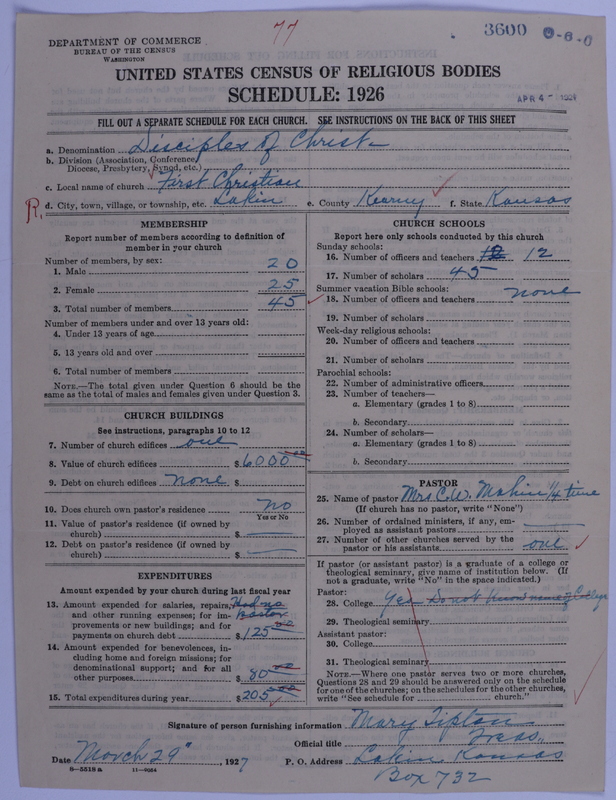 77
3600
DEPARTMENT OF COMMERCE
BUREAU OF THE CENSUS
WASHINGTON
UNITED STATES CENSUS OF RELIGIOUS BODIES
SCHEDULE: 1926
APR 4-
FILL OUT A SEPARATE SCHEDULE FOR EACH CHURCH. SEE INSTRUCTIONS ON THE BACK OF THIS SHEET
a. Denomination Disciples of Christ
b. Division (Association, Conference,
Diocese, Presbytery, Synod, etc.)
c. Local name of church First Christian
R. d. City, town, village, or township, etc. Lakin e. County Kearny f. State Kansas
MEMBERSHIP
Report number of members according to definition of
member in your church
Number of members, by sex:
1. Male 20
2. Female 25
3. Total number of members 45
Number of members under and over 13 years old:
4. Under 13 years of age
5. 13 years old and over
6. Total number of members
NOTE.—The total given under Question 6 should be the
same as the total of males and females given under Question 3.
CHURCH BUILDINGS
See instructions, paragraphs 10 to 12
7. Number of church edifices one
8. Value of church edifices $6000.00
9. Debt on church edifices none $
10. Does church own pastor's residence no
Yes or No
11. Value of pastor's residence (if owned by
church) $
12. Debt on pastor's residence (if owned by
church) $
EXPENDITURES
Amount expended by your church during last fiscal year
13. Amount expended for salaries, repairs, Had no
and other running expenses; for im- Pastor
provements or new buildings; and for
payments on church debt $125.00
14. Amount expended for benevolences, in-
cluding home and foreign missions; for
denominational support; and for all
other purposes $80.00
15. Total expenditures during year $205.00
CHURCH SCHOOLS
Report here only schools conducted by this church
Sunday schools:
16. Number of officers and teachers 12
17. Number of scholars 45
Summer vacation Bible schools:
18. Number of officers and teachers none
19. Number of scholars
Week-day religious schools:
20. Number of officers and teachers
21. Number of scholars
Parochial schools:
22. Number of administrative officers
23. Number of teachers—
a. Elementary (grades 1 to 8)
b. Secondary
24. Number of scholars—
a. Elementary (grades 1 to 8)
b. Secondary
PASTOR
25. Name of pastor Mrs C. W. Mahin 1/4 time
(If church has no pastor, write "None")
26. Number of ordained ministers, if any, em-
ployed as assistant pastors
27. Number of other churches served by the
pastor or his assistants one
If pastor (or assistant pastor) is a graduate of a college or
theological seminary, give name of institution below. (If
not a graduate, write "No" in the space indicated.)
Pastor:
28. College Yes Do not know name of College
29. Theological seminary
Assistant pastor:
30. College
31. Theological seminary
NOTE.—Where one pastor serves two or more churches,
Questions 28 and 29 should be answered only on the schedule
for one of the churches; on the schedules for the other churches,
write "See schedule for church."
Signature of person furnishing information Mary Tipton
Official title Treas.
Date March 29" 1927 P. O. Address Lakin Kansas
8-5518a 11-9054
Box 732